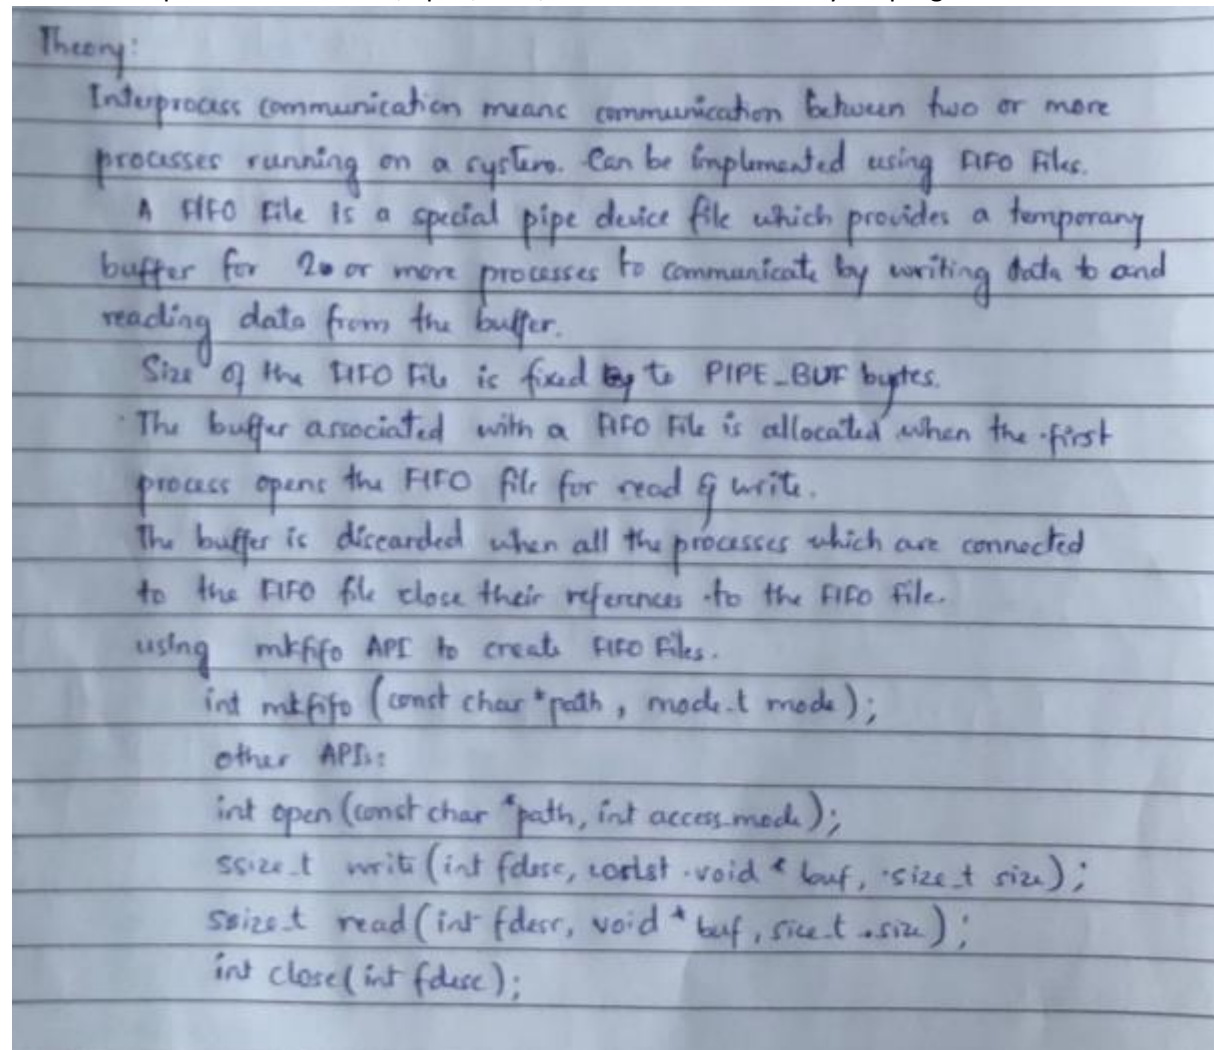 Theory:
Interprocess communication means communication between two or more
processes running on a system. Can be implemented using FIFO Files.
A FIFO File is a special pipe device file which provides a temporary
buffer for 2 or more processes to communicate by writing data to and
reading data from the buffer.
Size of the FIFO File is fixed to PIPE_BUF bytes.
The buffer associated with a FIFO File is allocated when the first
process opens the FIFO file for read & write.
The buffer is discarded when all the processes which are connected
to the FIFO file close their references to the FIFO file.
using mkfifo API to create FIFO Files.
int mkfifo (const char *path, mode_t mode);
other APIs:
int open (const char *path, int access_mode);
ssize_t write (int fdesc, const void * buf, size_t size);
ssize_t read (int fdesc, void * buf, size_t size);
int close (int fdesc);